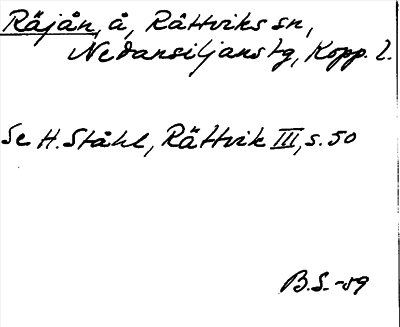 Räjån, å, Rättviks sn,
Nedansiljans tg, Kopp. l.
Se H. Ståhl, Rättvik III, s. 50
B.S. -59